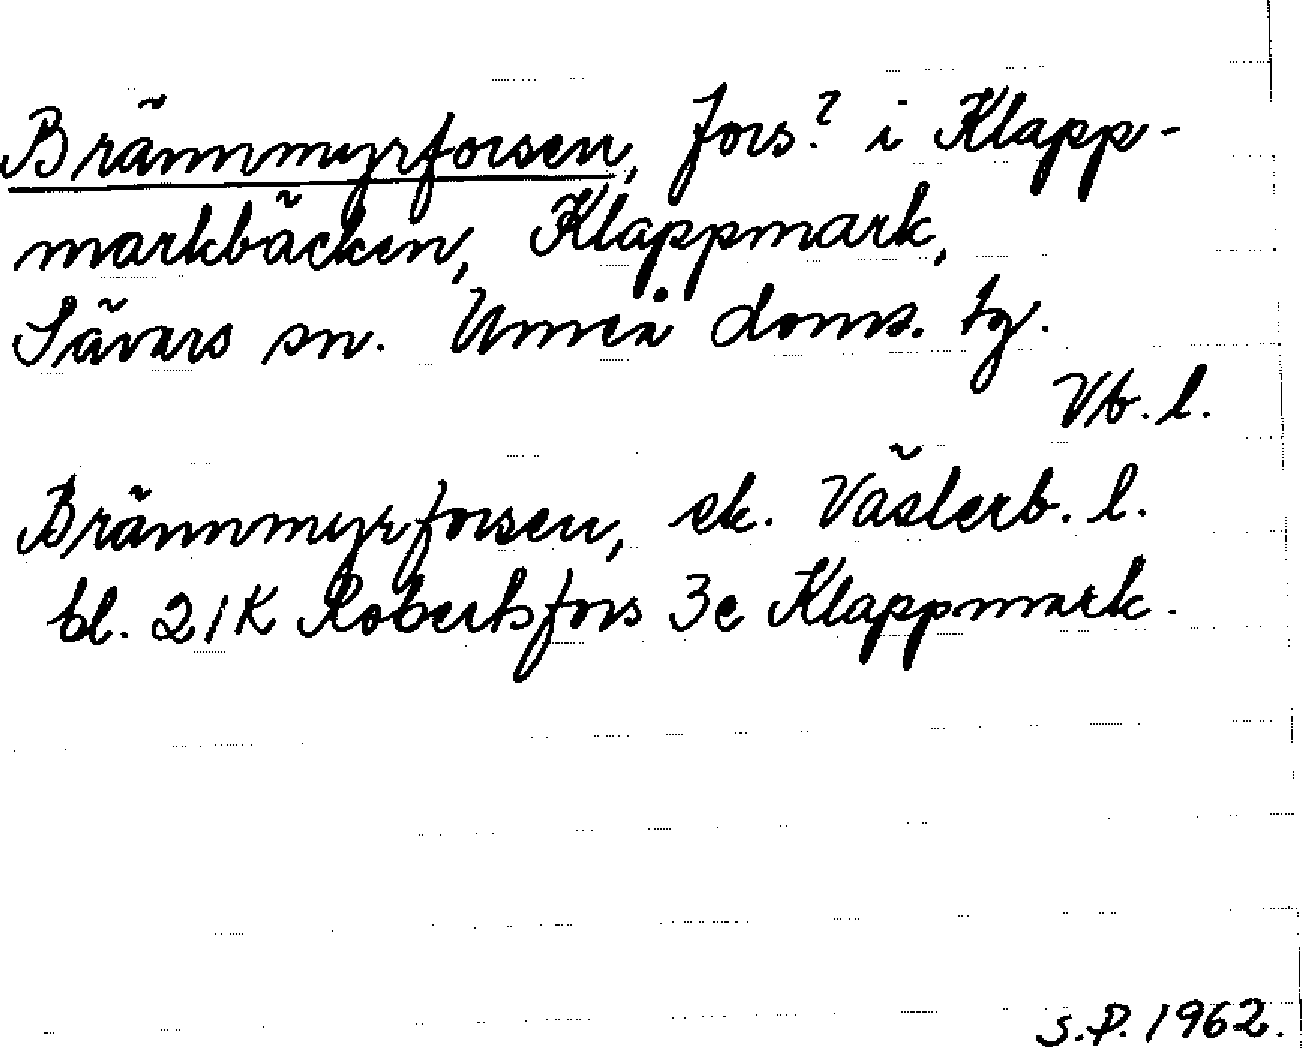 Brännmyrforsen, fors? i Klapp-
markbäcken, Klappmark,
Sävars sn. Umeå doms. tg.
Vb. l.
Brännmyrforsen, ek. Västerb. l.
bl. 21K Robertsfors 3e Klappmark.
S.P. 1962.